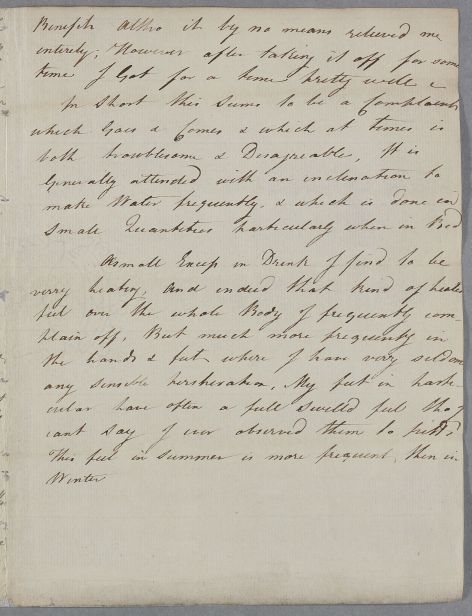 Benefit altho it by no means relieved me
entirely; However after taking it off for some
time I Got for a time pretty well &
In Short this seems to be a Complaint
which Goes & Comes & which at times is
both troublesome & Disagreable, It is
Generally attended with an inclination to
make Water frequently, & which is done in
Small Quantities particularly when in Bed
A small Excess in Drink I find to be
verry heating, and indeed that kind of heate
feel over the whole Body I frequently com-
plain off, But much more frequently in
the hands & feet where I have very seldom
any sensible perspiration, My feet in parti-
cular have often a full swelld feel tho I
cant say I ever observed them to pitt,
This feel in summer is more frequent then in
Winter